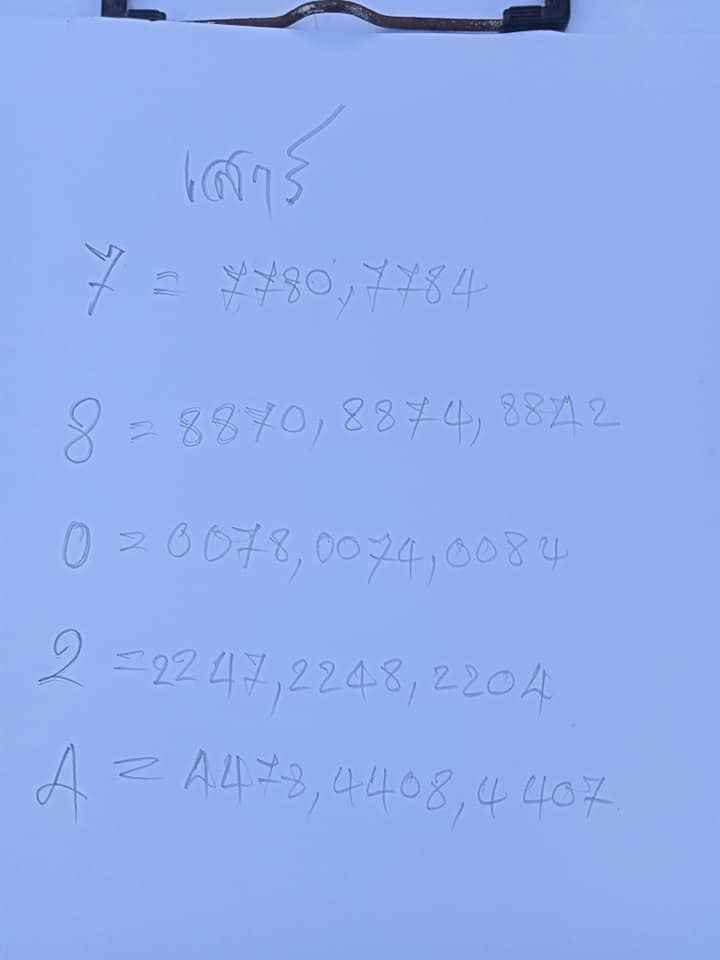 เสาร์
7 = 7780, 7784
8 = 8870, 8874, 8842
0 = 0078, 0074, 0084
2 = 2247, 2248, 2204
4 = 4478, 4408, 4407